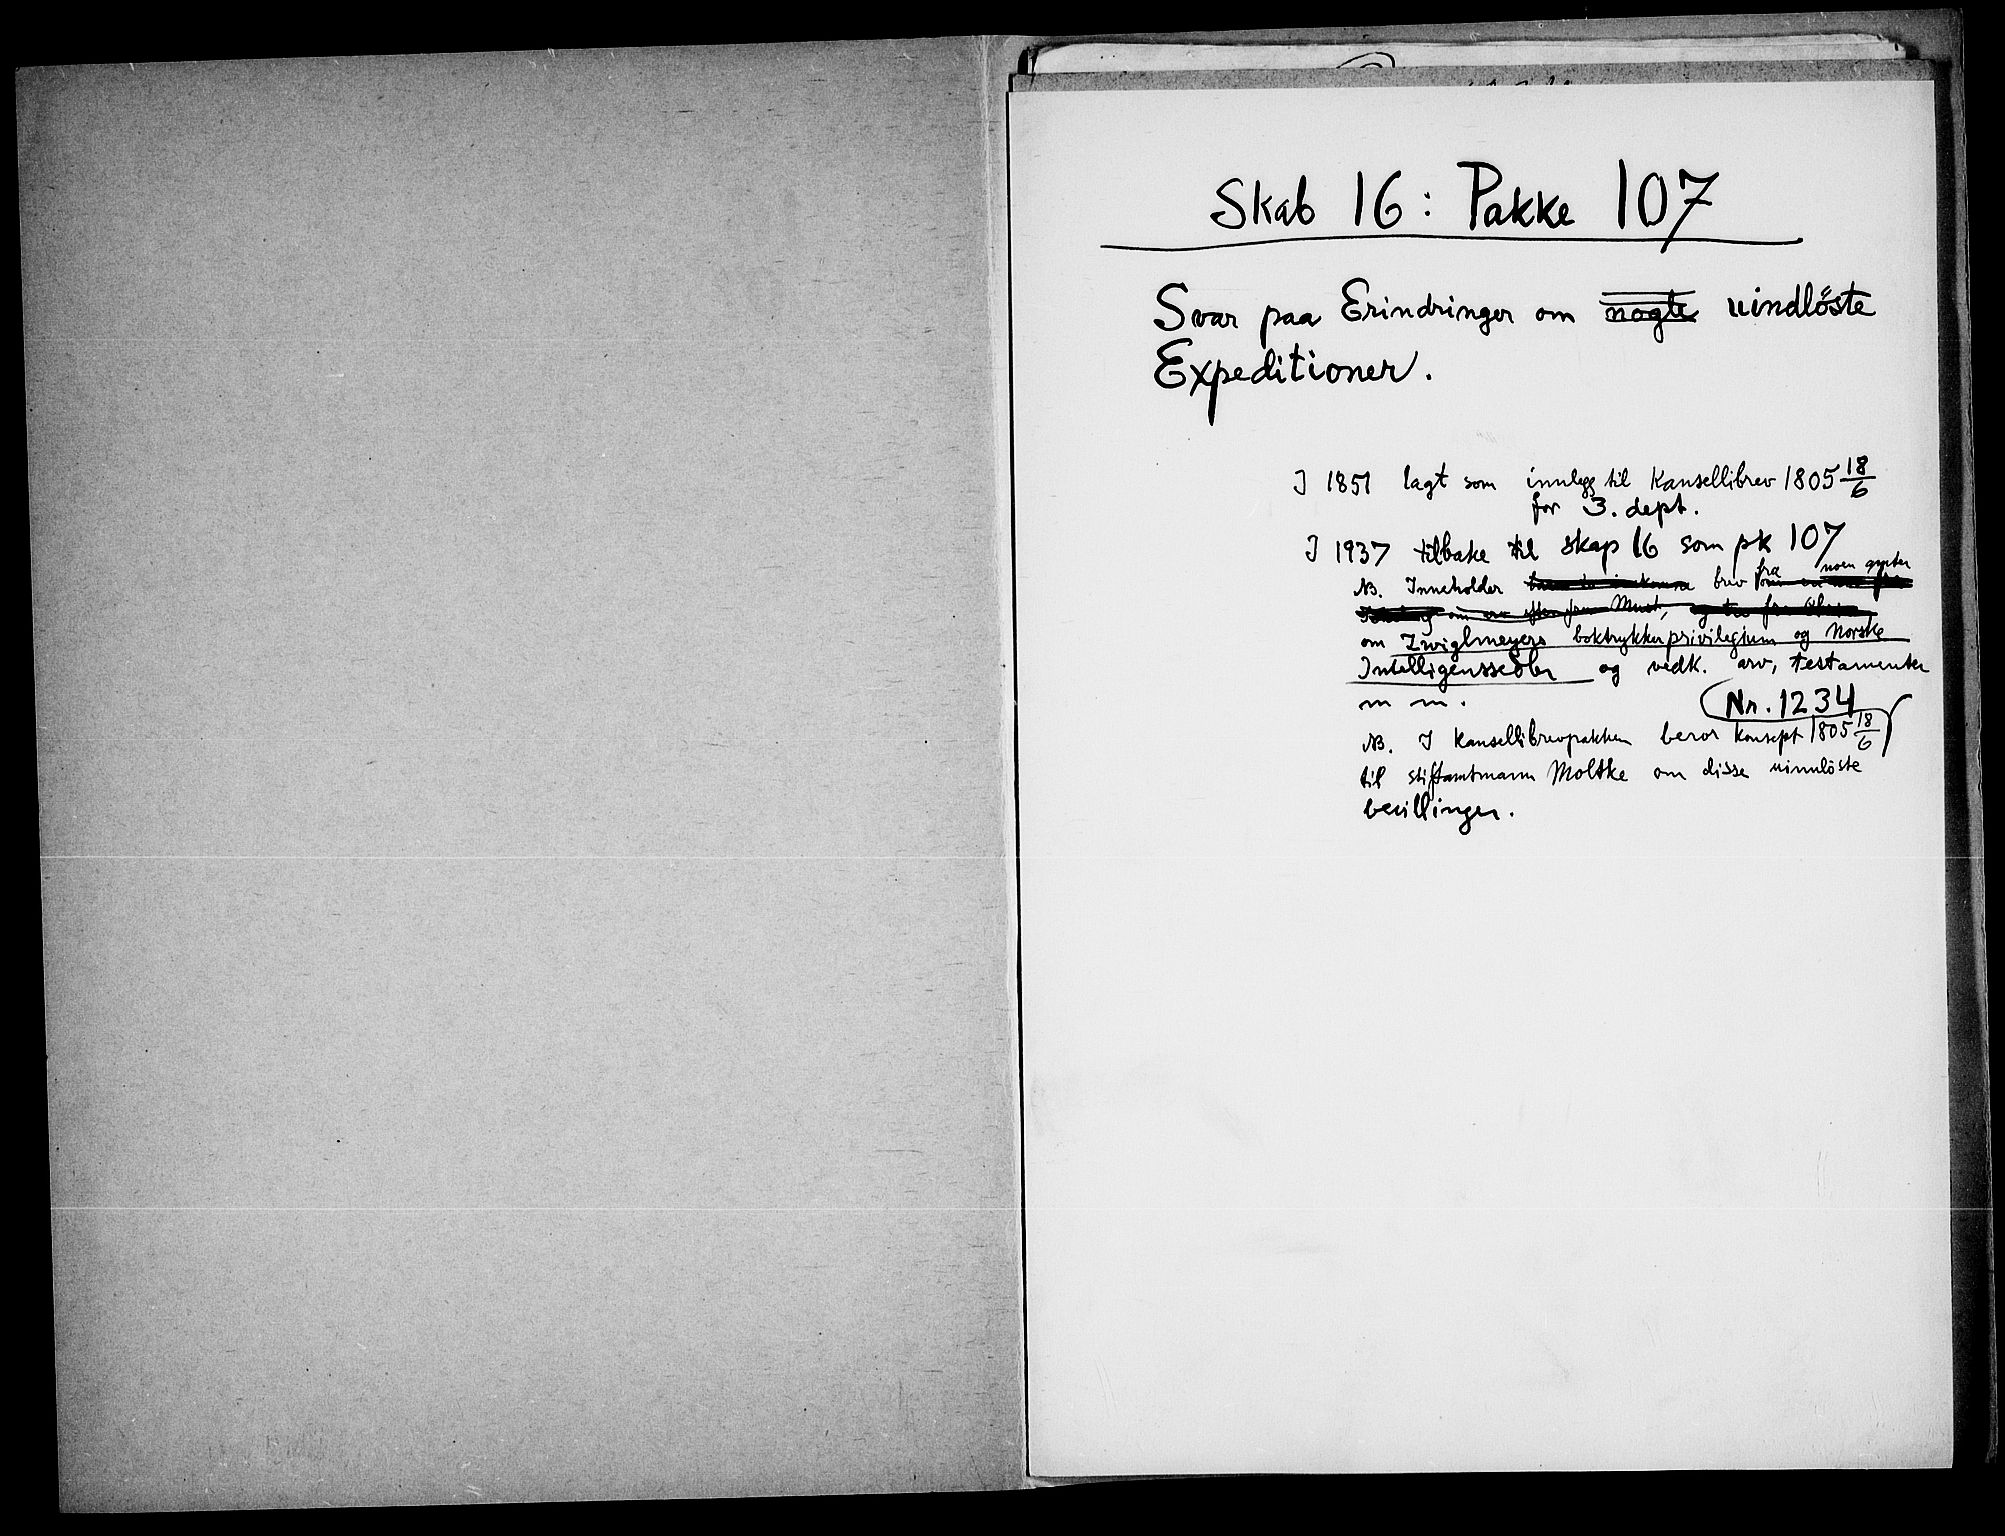 Skab 16: Pakke 107
Svar paa Erindringer om nogle uindlöste
Expeditioner.
I 1851 lagt som innlegg til Kansellibrev 1805 18/6
for 3. dept.
I 1937 tilbake til skap 16 som pk 107
NB. Inneholder brev fra noen
om Zwiglmeyers boktrykkerprivilegium og Norske
Intelligenssedler og vedk. arv, testamenter
m m.
Nr. 1234
NB. I Kansellibrevpakken beror konsept 1805 18/6
til stiftamtmann Moltke om disse uinnlöste
bevillinger.